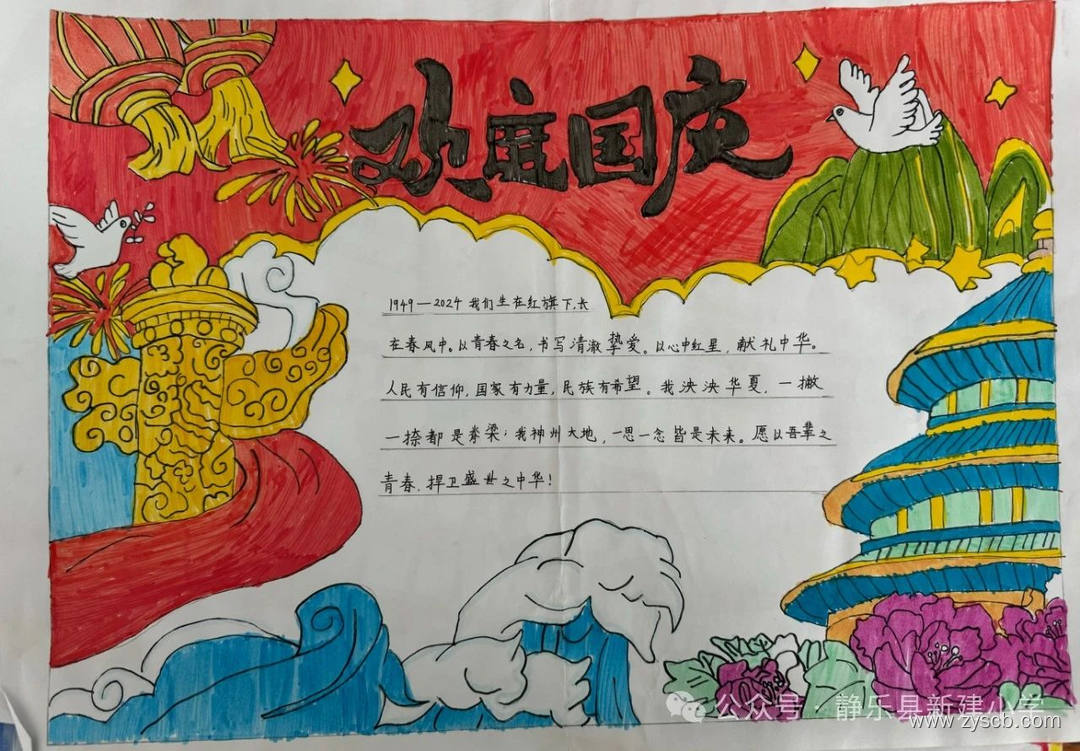 欢度国庆
1949—2024 我们生在红旗下,长
在春风中。以青春之名,书写清澈挚爱。以心中红星,献礼中华。
人民有信仰,国家有力量,民族有希望。我泱泱华夏,一撇
一捺都是脊梁;我神州大地,一思一念皆是未来。愿以吾辈之
青春,捍卫盛世之中华!
公众号·静乐县新建小学
www.zyscb.com